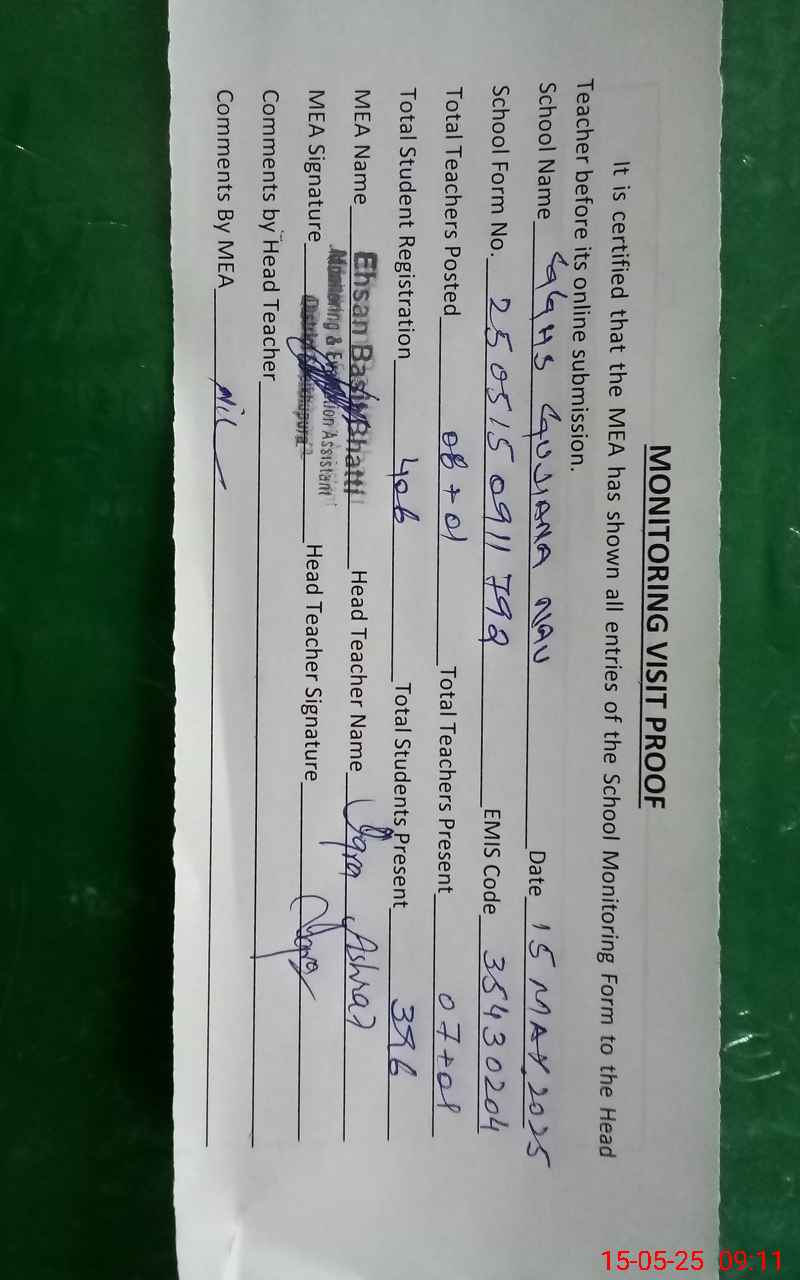 MONITORING VISIT PROOF
It is certified that the MEA has shown all entries of the School Monitoring Form to the Head
Teacher before its online submission.
School Name GGHS GUJIANA NAU Date 15 MAY 2025
School Form No. 2505150911792 EMIS Code 35430204
Total Teachers Posted 08+01 Total Teachers Present 07+01
Total Student Registration 406 Total Students Present 396
MEA Name Ehsan Basir Bhatti Head Teacher Name Iqra Ashraf
Monitoring & Evaluation Assistant
District Sheikhupura
MEA Signature Head Teacher Signature Iqra
Comments by Head Teacher
Comments By MEA Nil
15-05-25 09:11